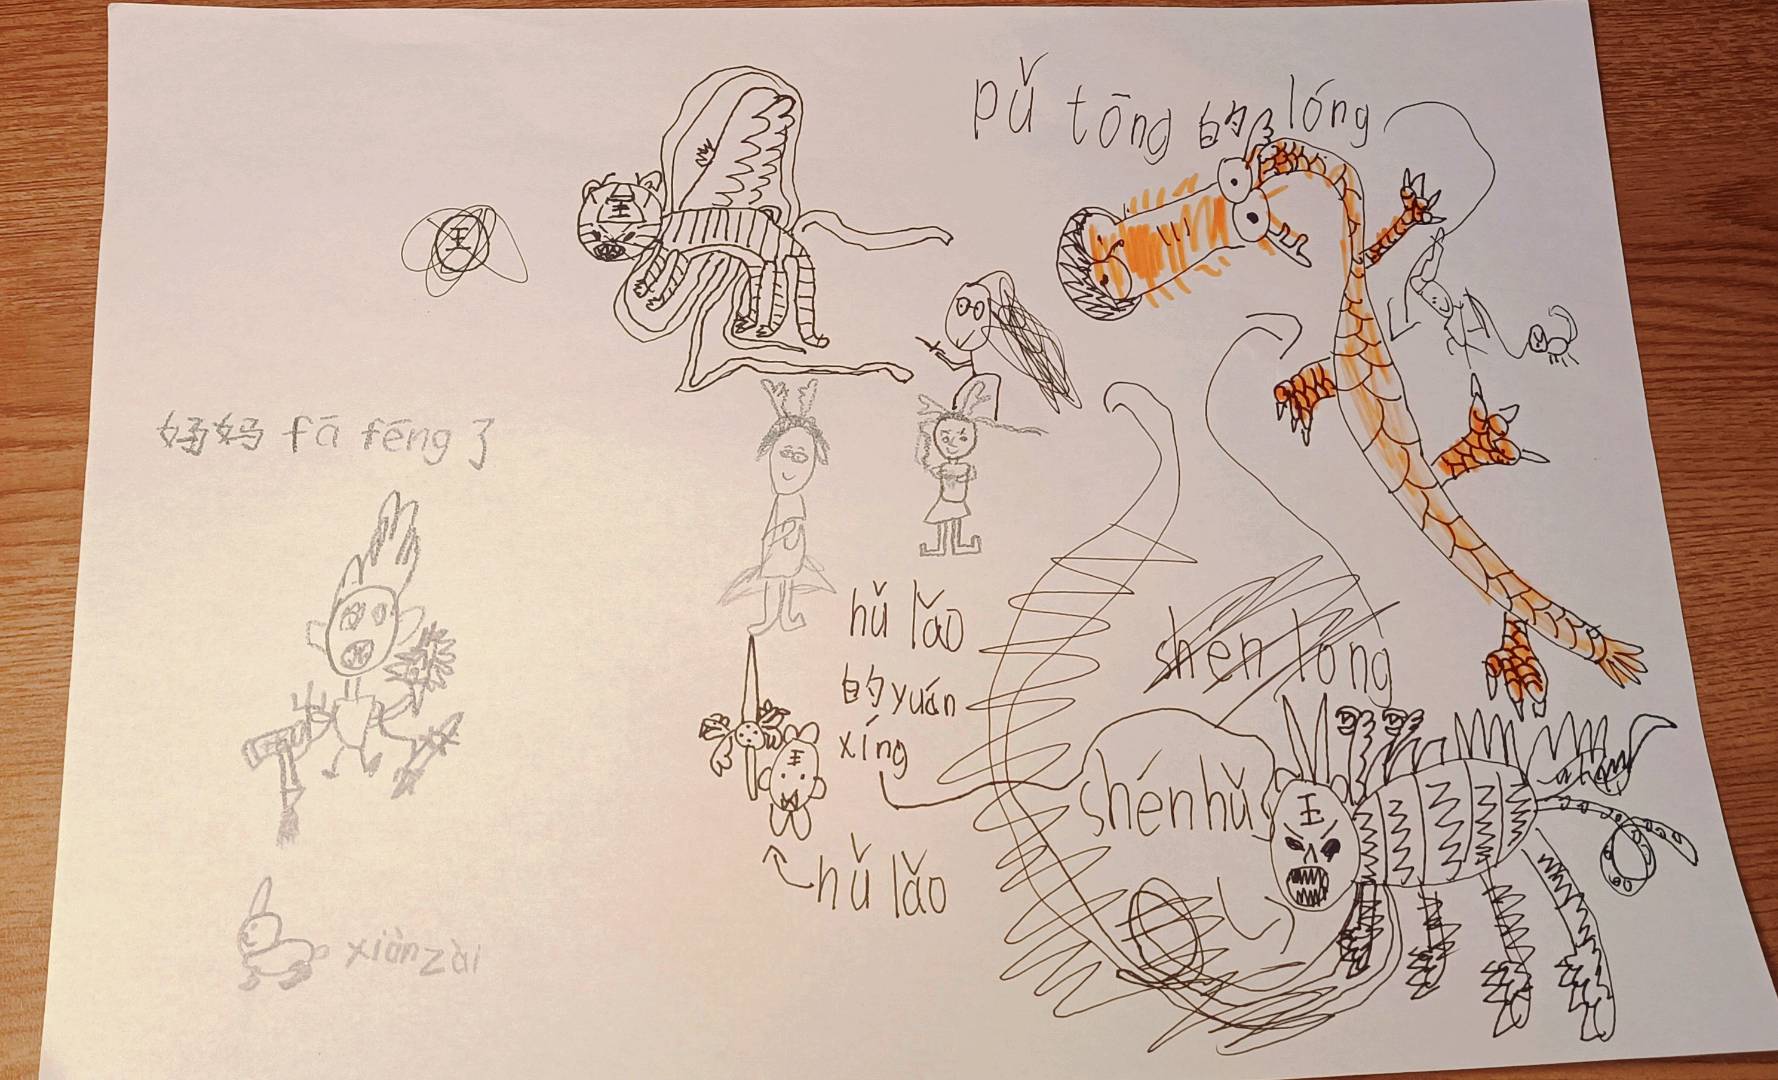 pǔ tōng 的 lóng
王
王
妈妈 fā fēng 了
hǔ lǎo
的 yuán
xíng
shén lóng
王
shén hǔ
王
hǔ lǎo
xiàn zài